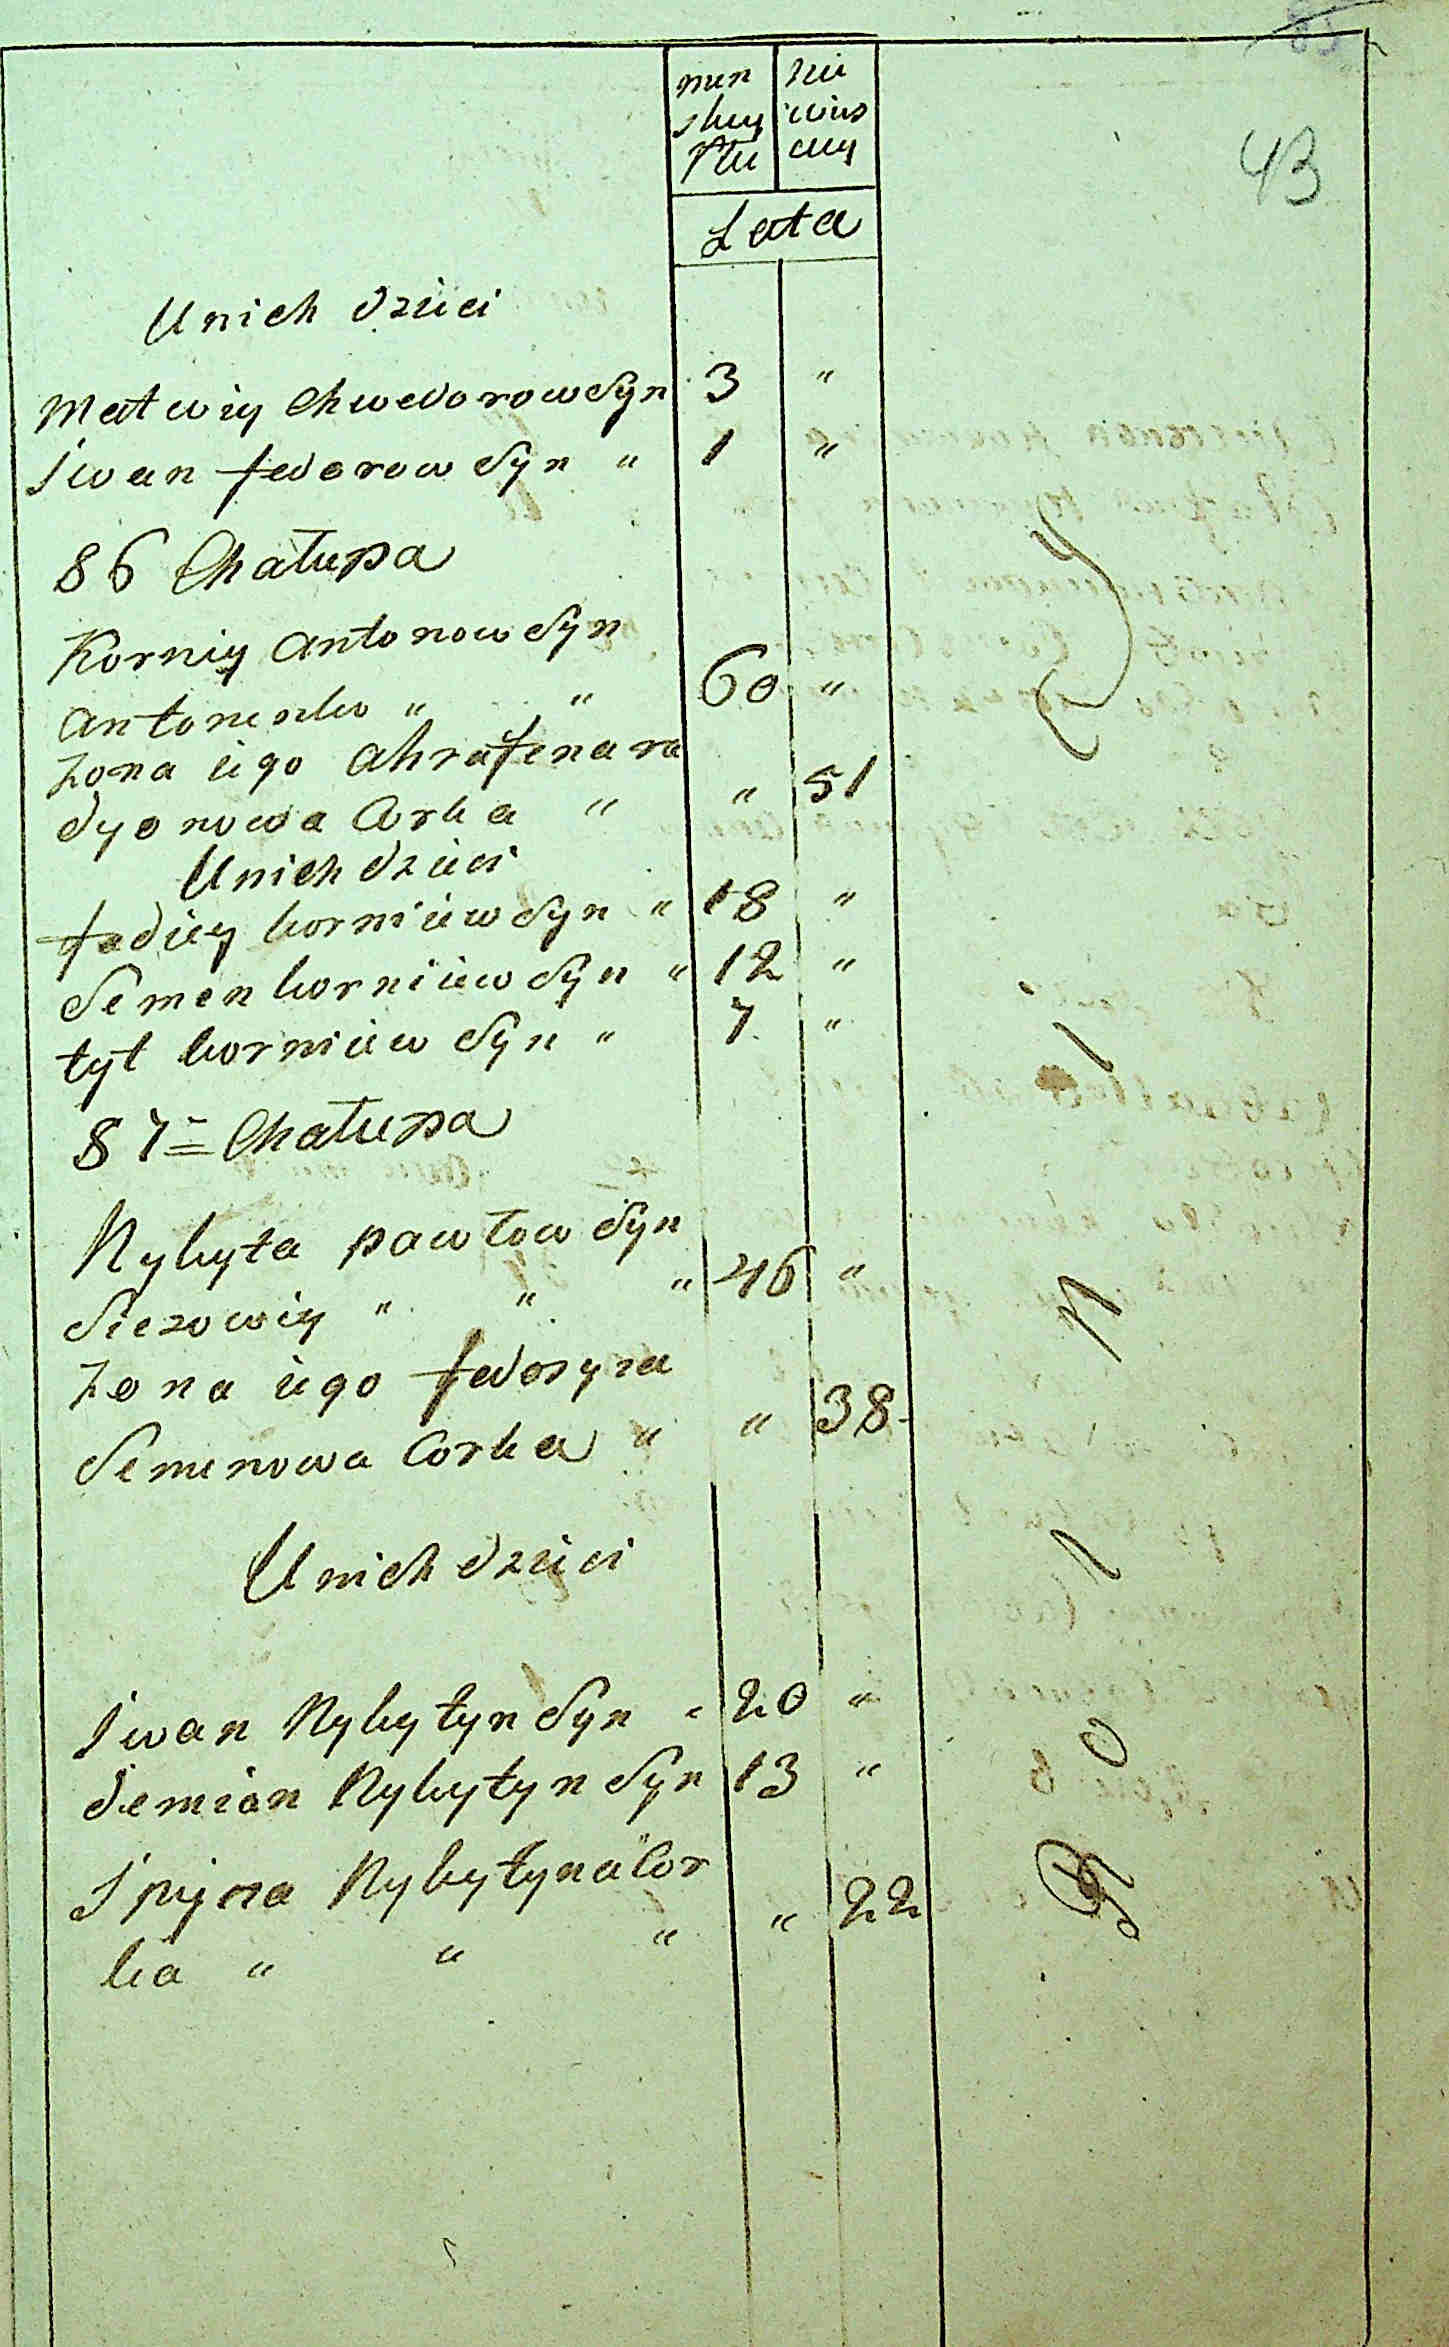 43
men nie
skey wies
Płci ciey
Lata
U nich dzieci
Matwiy Chwedorow Syn 3 "
Iwan fedorow Syn " 1 "
86 Chałupa
Korniy Antonow Syn
Antonenko " " 60 "
Zona iego Ahrafena ra
dyonowa Corka " " 51
U nich dzieci
fadiey korniiew Syn " 18 "
Semen korniiew Syn " 12 "
tyt korniiew Syn " 7 "
87 = Chałupa
Nykyta pawłow Syn
" " " 46 "
Zona iego fedosyia
Semenowa Corka " " 38
U nich dzieci
Iwan Nykytyn Syn " 20 "
demian Nykytyn Syn 13 "
Nykytyna Cor
ka " " " " 22